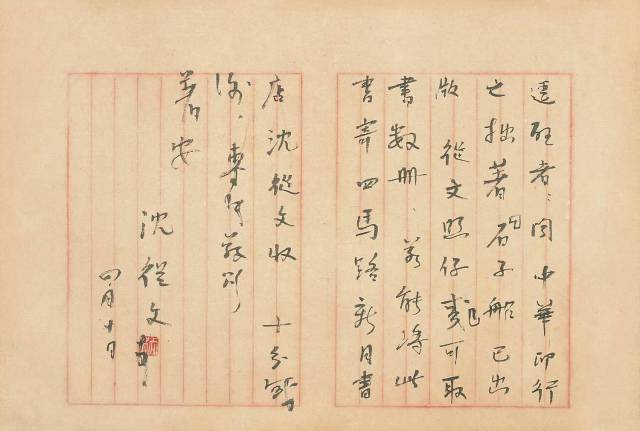 逕启者：闻中華印行
之拙著石子船已出
版 從文照仔契可取
書数册，若能将此
書寄四馬路新月書
店沈從文收 十分
，專此敬
著安
沈從文
四月十日